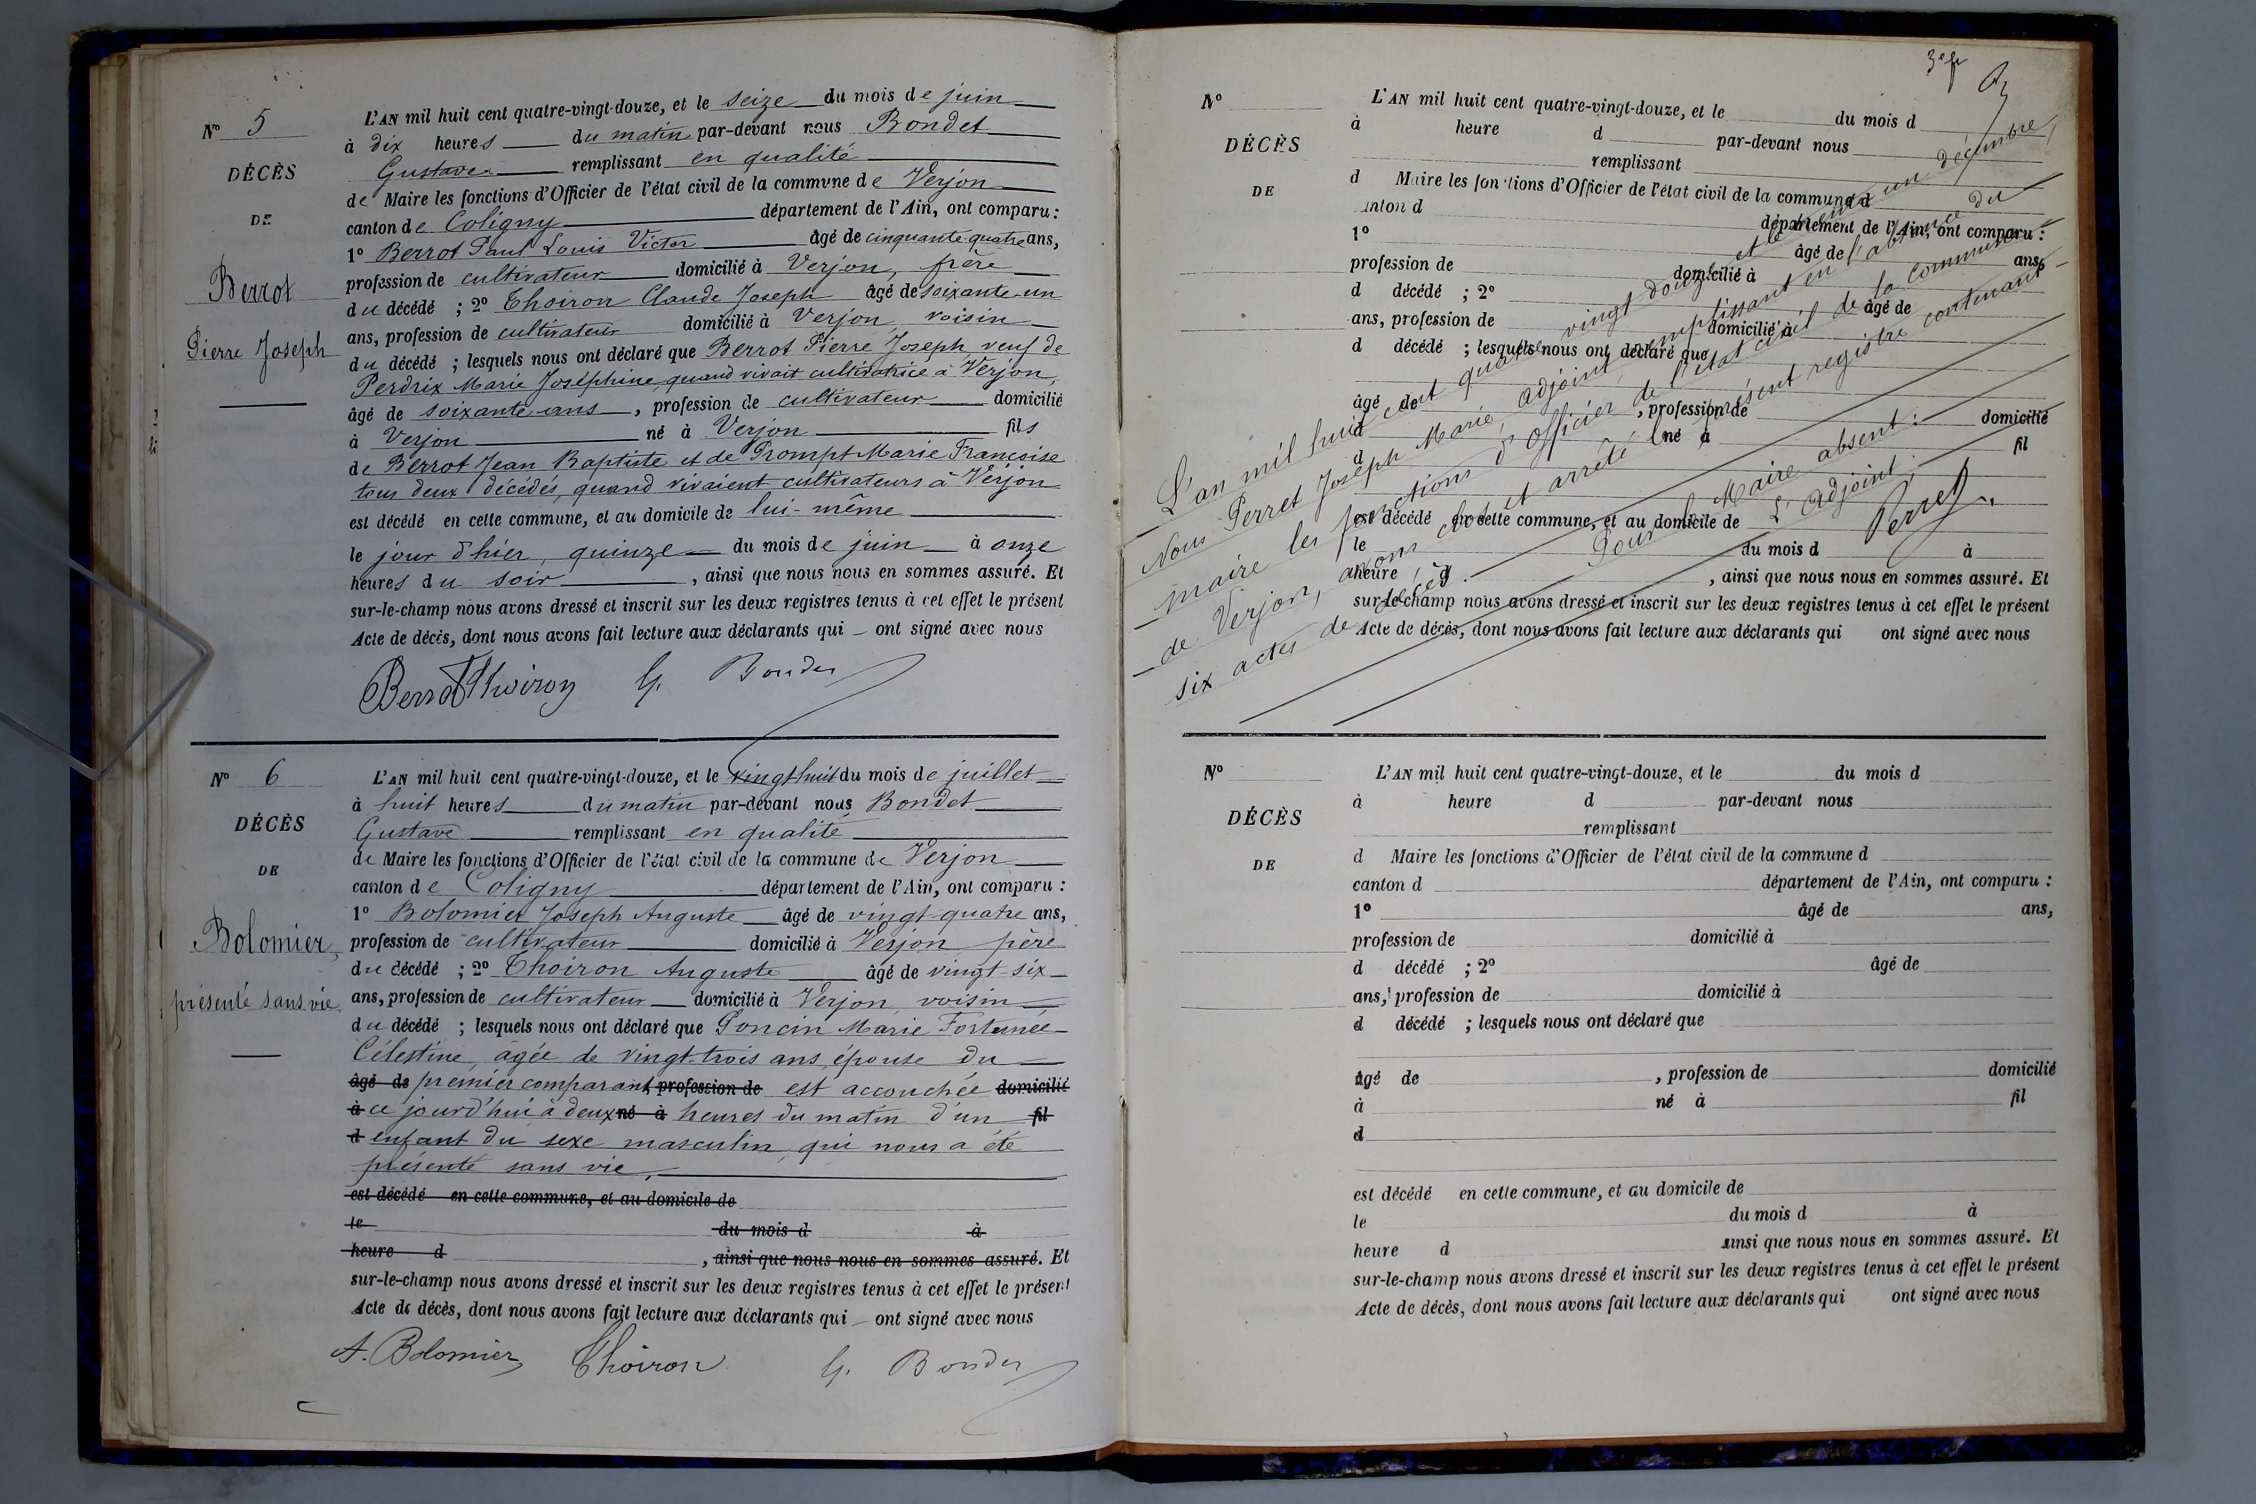 N° 5
DÉCÈS
DE
Berrot
Pierre Joseph
L'AN mil huit cent quatre-vingt-douze, et le seize du mois de juin
à dix heures du matin par-devant nous Bondet
Gustave remplissant en qualité
de Maire les fonctions d'Officier de l'état civil de la commune de Verjon
canton de Coligny département de l'Ain, ont comparu :
1° Berrot Paul Louis Victor âgé de cinquante quatre ans,
profession de cultivateur domicilié à Verjon, frère
du décédé ; 2° Thoiron Claude Joseph âgé de soixante-un
ans, profession de cultivateur domicilié à Verjon voisin
du décédé ; lesquels nous ont déclaré que Berrot Pierre Joseph veuf de
Perdrix Marie Joséphine quand vivait cultivatrice à Verjon,
âgé de soixante ans, profession de cultivateur domicilié
à Verjon né à Verjon fils
de Berrot Jean Baptiste et de Prompt Marie Françoise
tous deux décédés, quand vivaient cultivateurs à Verjon
est décédé en cette commune, et au domicile de lui-même
le jour d'hier, quinze du mois de juin à onze
heures du soir, ainsi que nous nous en sommes assuré. Et
sur-le-champ nous avons dressé et inscrit sur les deux registres tenus à cet effet le présent
Acte de décès, dont nous avons fait lecture aux déclarants qui ont signé avec nous
Berrot Thoiron G. Bondet
N° 6
DÉCÈS
DE
Bolomier,
présenté sans vie
L'AN mil huit cent quatre-vingt-douze, et le vingt huit du mois de juillet
à huit heures du matin par-devant nous Bondet
Gustave remplissant en qualité
de Maire les fonctions d'Officier de l'état civil de la commune de Verjon
canton de Coligny département de l'Ain, ont comparu :
1° Bolomier Joseph Auguste âgé de vingt-quatre ans,
profession de cultivateur domicilié à Verjon père
du décédé ; 2° Thoiron Auguste âgé de vingt-six
ans, profession de cultivateur domicilié à Verjon, voisin
du décédé ; lesquels nous ont déclaré que Poncin Marie Fortunée
Célestine, âgée de vingt-trois ans, épouse du
âgé de premier comparant, profession de est accouchée domicilié
à ce jourd'hui à deux né à heures du matin d'un fil
d enfant du sexe masculin, qui nous a été
présenté sans vie,
est décédé en cette commune, et au domicile de
le du mois d à
heure d , ainsi que nous nous en sommes assuré. Et
sur-le-champ nous avons dressé et inscrit sur les deux registres tenus à cet effet le présent
Acte de décès, dont nous avons fait lecture aux déclarants qui ont signé avec nous
A. Bolomier Thoiron G. Bondet
N°
DÉCÈS
DE
L'AN mil huit cent quatre-vingt-douze, et le du mois d
à heure d par-devant nous
remplissant
d Maire les fonctions d'Officier de l'état civil de la commune d
canton d département de l'Ain, ont comparu :
1° âgé de ans,
profession de domicilié à
d décédé ; 2° âgé de
ans, profession de domicilié à
d décédé ; lesquels nous ont déclaré que
âgé de , profession de domicilié
à né à fil
d
est décédé en cette commune, et au domicile de
le du mois d à
heure d , ainsi que nous nous en sommes assuré. Et
sur-le-champ nous avons dressé et inscrit sur les deux registres tenus à cet effet le présent
Acte de décès, dont nous avons fait lecture aux déclarants qui ont signé avec nous
L'an mil huit cent quatre vingt douze et le trente un décembre,
Nous Perret Joseph Marie, adjoint, remplissant en l'absence du
maire les fonctions d'Officier de l'état civil de la commune
de Verjon, avons clos et arrêté le présent registre contenant
six actes de décès.
Pour le Maire absent :
L'adjoint :
Perret
N°
DÉCÈS
DE
L'AN mil huit cent quatre-vingt-douze, et le du mois d
à heure d par-devant nous
remplissant
d Maire les fonctions d'Officier de l'état civil de la commune d
canton d département de l'Ain, ont comparu :
1° âgé de ans,
profession de domicilié à
d décédé ; 2° âgé de
ans, profession de domicilié à
d décédé ; lesquels nous ont déclaré que
âgé de , profession de domicilié
à né à fil
d
est décédé en cette commune, et au domicile de
le du mois d à
heure d ainsi que nous nous en sommes assuré. Et
sur-le-champ nous avons dressé et inscrit sur les deux registres tenus à cet effet le présent
Acte de décès, dont nous avons fait lecture aux déclarants qui ont signé avec nous